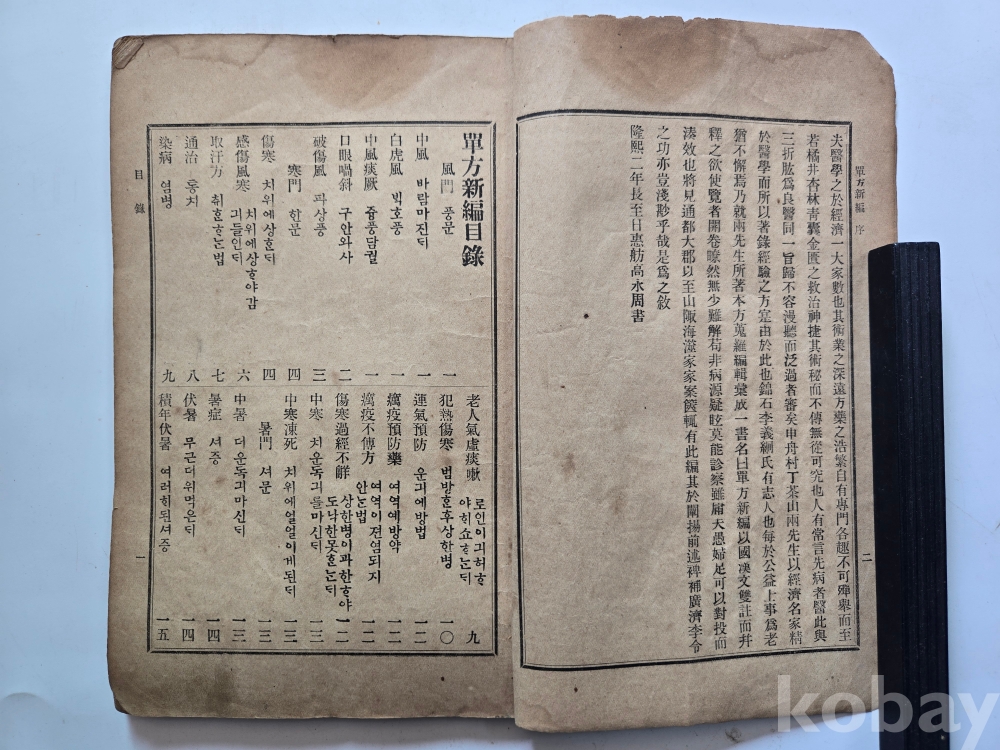 單方新編 序
二
夫醫學之於經濟一大家數也其術業之深遠方藥之浩繁自有專門各趣不可殫擧而至
若橘井杏林靑囊金匱之救治神捷其術秘而不傳無從可究也人有常言先病者醫此與
三折肱爲良醫同一旨歸不容漫聽而泛過者審矣申舟村丁茶山兩先生以經濟名家精
於醫學而所以著錄經驗之方寔由於此也錦石李義絅氏有志人也每於公益上事爲老
猶不懈焉乃就兩先生所著本方蒐羅編輯彙成一書名曰單方新編以國漢文雙註而幷
釋之欲使覽者開卷瞭然無少難解苟非病源疑眩莫能診察雖庸夫愚婦足可以對投而
湊效也將見通都大郡以至山陬海澨家家案篋輒有此編其於闡揚前述裨補廣濟李令
之功亦豈淺尠乎哉是爲之敘
隆熙二年長至日惠舫高永周書
單方新編目錄
風門 풍문 一
中風 바람마진ᄃᆡ 一
白虎風 ᄇᆡᆨ호풍 一
中風痰厥 즁풍담궐 一
口眼喎斜 구안와사 二
破傷風 파상풍 三
寒門 한문 四
傷寒 치위에상ᄒᆞᆫᄃᆡ 四
感傷風寒 치위에상ᄒᆞ야감긔들인ᄃᆡ 六
取汗方 취ᄒᆞᆫᄒᆞᄂᆞᆫ법 七
通治 통치 八
染病 염병 九
老人氣虛痰嗽 로인이긔허ᄒᆞ야ᄒᆡ쇼ᄒᆞᄂᆞᆫᄃᆡ 九
犯熱傷寒 범방ᄒᆞᆫ후상한병 一〇
運氣預防 운긔예방법 一二
癘疫預防藥 여역예방약 一二
癘疫不傳方 여역이젼염되지안ᄂᆞᆫ법 一二
傷寒過經不解 상한병이과한ᄒᆞ야도낫지못ᄒᆞᄂᆞᆫᄃᆡ 一二
中寒 치운독긔를마신ᄃᆡ 一三
中寒凍死 치위에얼얼이게된ᄃᆡ 一三
暑門 셔문 一三
中暑 더운독긔마신ᄃᆡ 一三
暑症 셔증 一四
伏暑 무근더위먹은ᄃᆡ 一四
積年伏暑 여러ᄒᆡ된셔증 一五
目錄
一
kobay